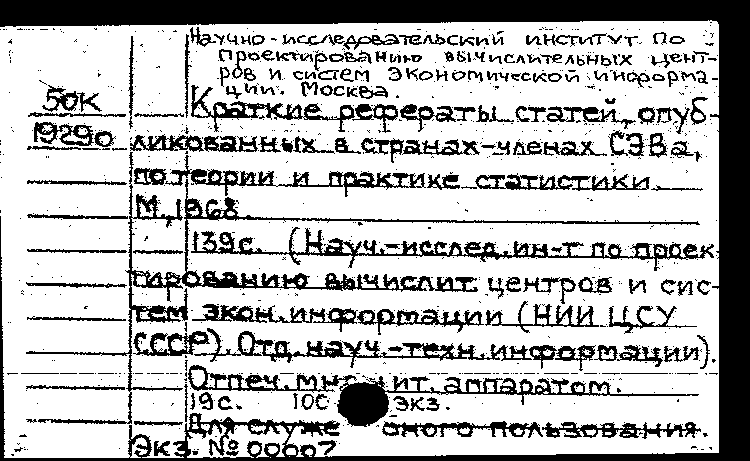 Научно-исследовательский институт по
проектированию вычислительных цент-
ров и систем экономической информа-
ции. Москва.
50К
19290
Краткие рефераты статей, опуб-
ликованных в странах-членах СЭВа,
по теории и практике статистики.
М., 1968.
139с. (Науч.-исслед.ин-т по проек-
тированию вычислит. центров и сис-
тем экон.информации (НИИ ЦСУ
СССР). Отд.науч.-техн.информации).
Отпеч. аппаратом.
19с. экз.
Для пользования.
Экз. № 00007